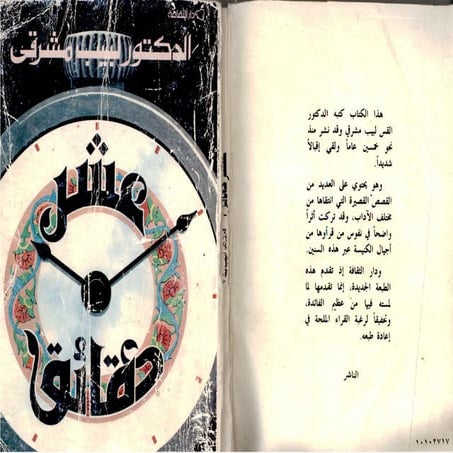 دار الثقافة
الدكتور لبيب مشرقى
عشر
دقائق
هذا الكتاب كتبه الدكتور
القس لبيب مشرقي وقد نشر منذ
نحو خمسين عاماً ولقي إقبالاً
شديداً.
وهو يحتوي على العديد من
القصص القصيرة التي انتقاها من
مختلف الآداب، وقد تركت أثراً
واضحاً في نفوس من قرأوها من
أجيال الكنيسة عبر هذه السنين.
ودار الثقافة إذ تقدم هذه
الطبعة الجديدة، إنما تقدمها لما
لمسته فيها من عظيم الفائدة،
وتحقيقاً لرغبة القراء الملحة في
إعادة طبعه.
الناشر
١٠١٠٢٧١٧